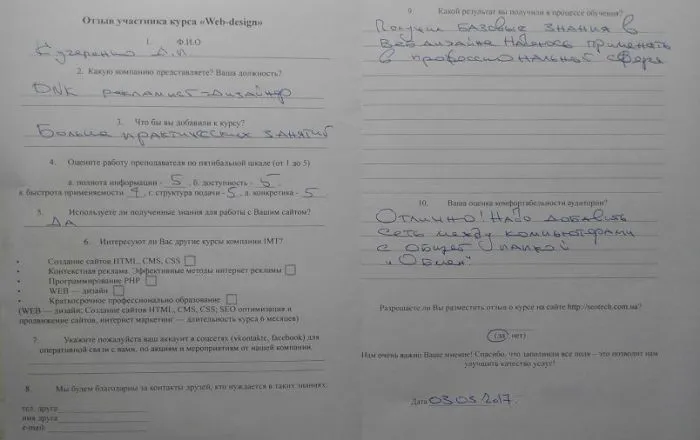 Отзыв участника курса «Web-design»
1. Ф.И.О
Кучеренко А.П.
2. Какую компанию представляете? Ваша должность?
DNK рекламист-дизайнер
3. Что бы вы добавили к курсу?
Больше практических занятий
4. Оцените работу преподавателя по пятибальной шкале (от 1 до 5)
а. полнота информации - 5 б. доступность - 5
в. быстрота применяемости 4 г. структура подачи - 5 д. конкретика - 5
5. Используете ли полученные знания для работы с Вашим сайтом?
ДА
6. Интересуют ли Вас другие курсы компании IMT?
• Создание сайтов HTML, CMS, CSS
• Контекстная реклама. Эффективные методы интернет рекламы
• Программирование PHP
• WEB — дизайн
• Краткосрочное профессионально образование
(WEB — дизайн; Создание сайтов HTML, CMS, CSS; SEO оптимизация и
продвижение сайтов, интернет маркетинг — длительность курса 6 месяцев)
7. Укажите пожалуйста ваш аккаунт в соцсетях (vkontakte, facebook) для
оперативной связи с вами, по акциям и мероприятиям от нашей компании.
8. Мы будем благодарны за контакты друзей, кто нуждается в таких знаниях:
тел. друга
имя друга
e-mail:
9. Какой результат вы получили в процессе обучения?
Получил БАЗОВЫЕ ЗНАНИЯ в
веб дизайне Надеюсь применять
в профессиональной сфере
10. Ваша оценка комфортабельности аудитории?
Отлично! Надо добавить
сеть между компьютерами
с общей папкой
"Обмен"
Разрешаете ли Вы разместить отзыв о курсе на сайте http://seotech.com.ua?
(да/ нет)
Нам очень важно Ваше мнение! Спасибо, что заполнили все поля – это позволит нам
улучшить качество услуг!
Дата 03.03.2017.